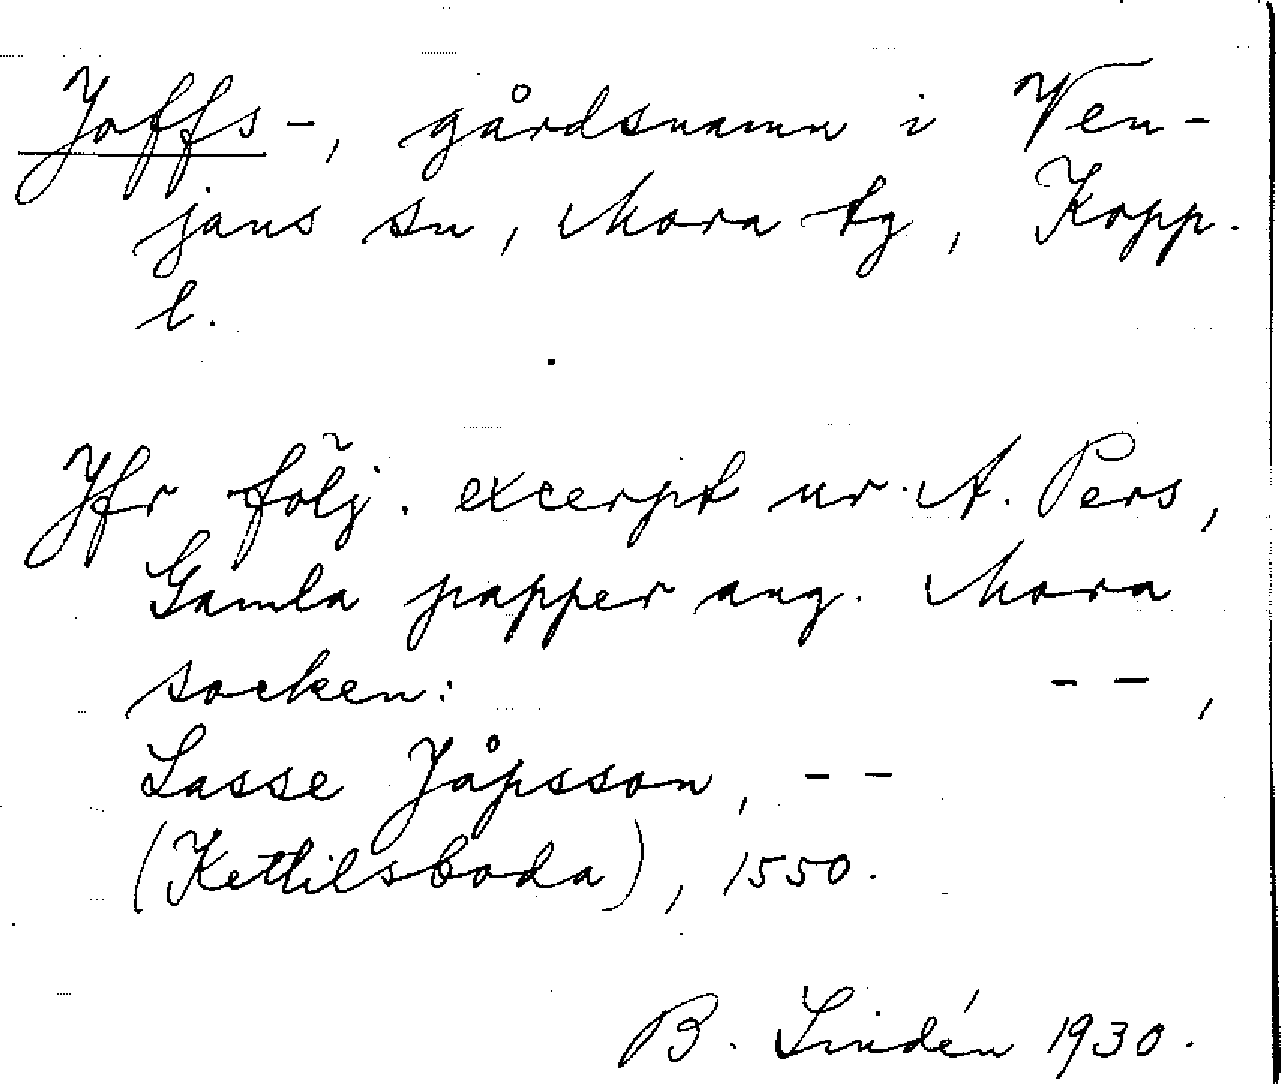 Joffs-, gårdsnamn i Ven-
jans sn, Mora tg, Kopp.
l.
Jfr följ. excerpt ur A. Pers,
Gamla papper ang. Mora
socken: - -,
Lasse Jåpsson, - -
(Kettilsboda), 1550.
B. Lindén 1930.